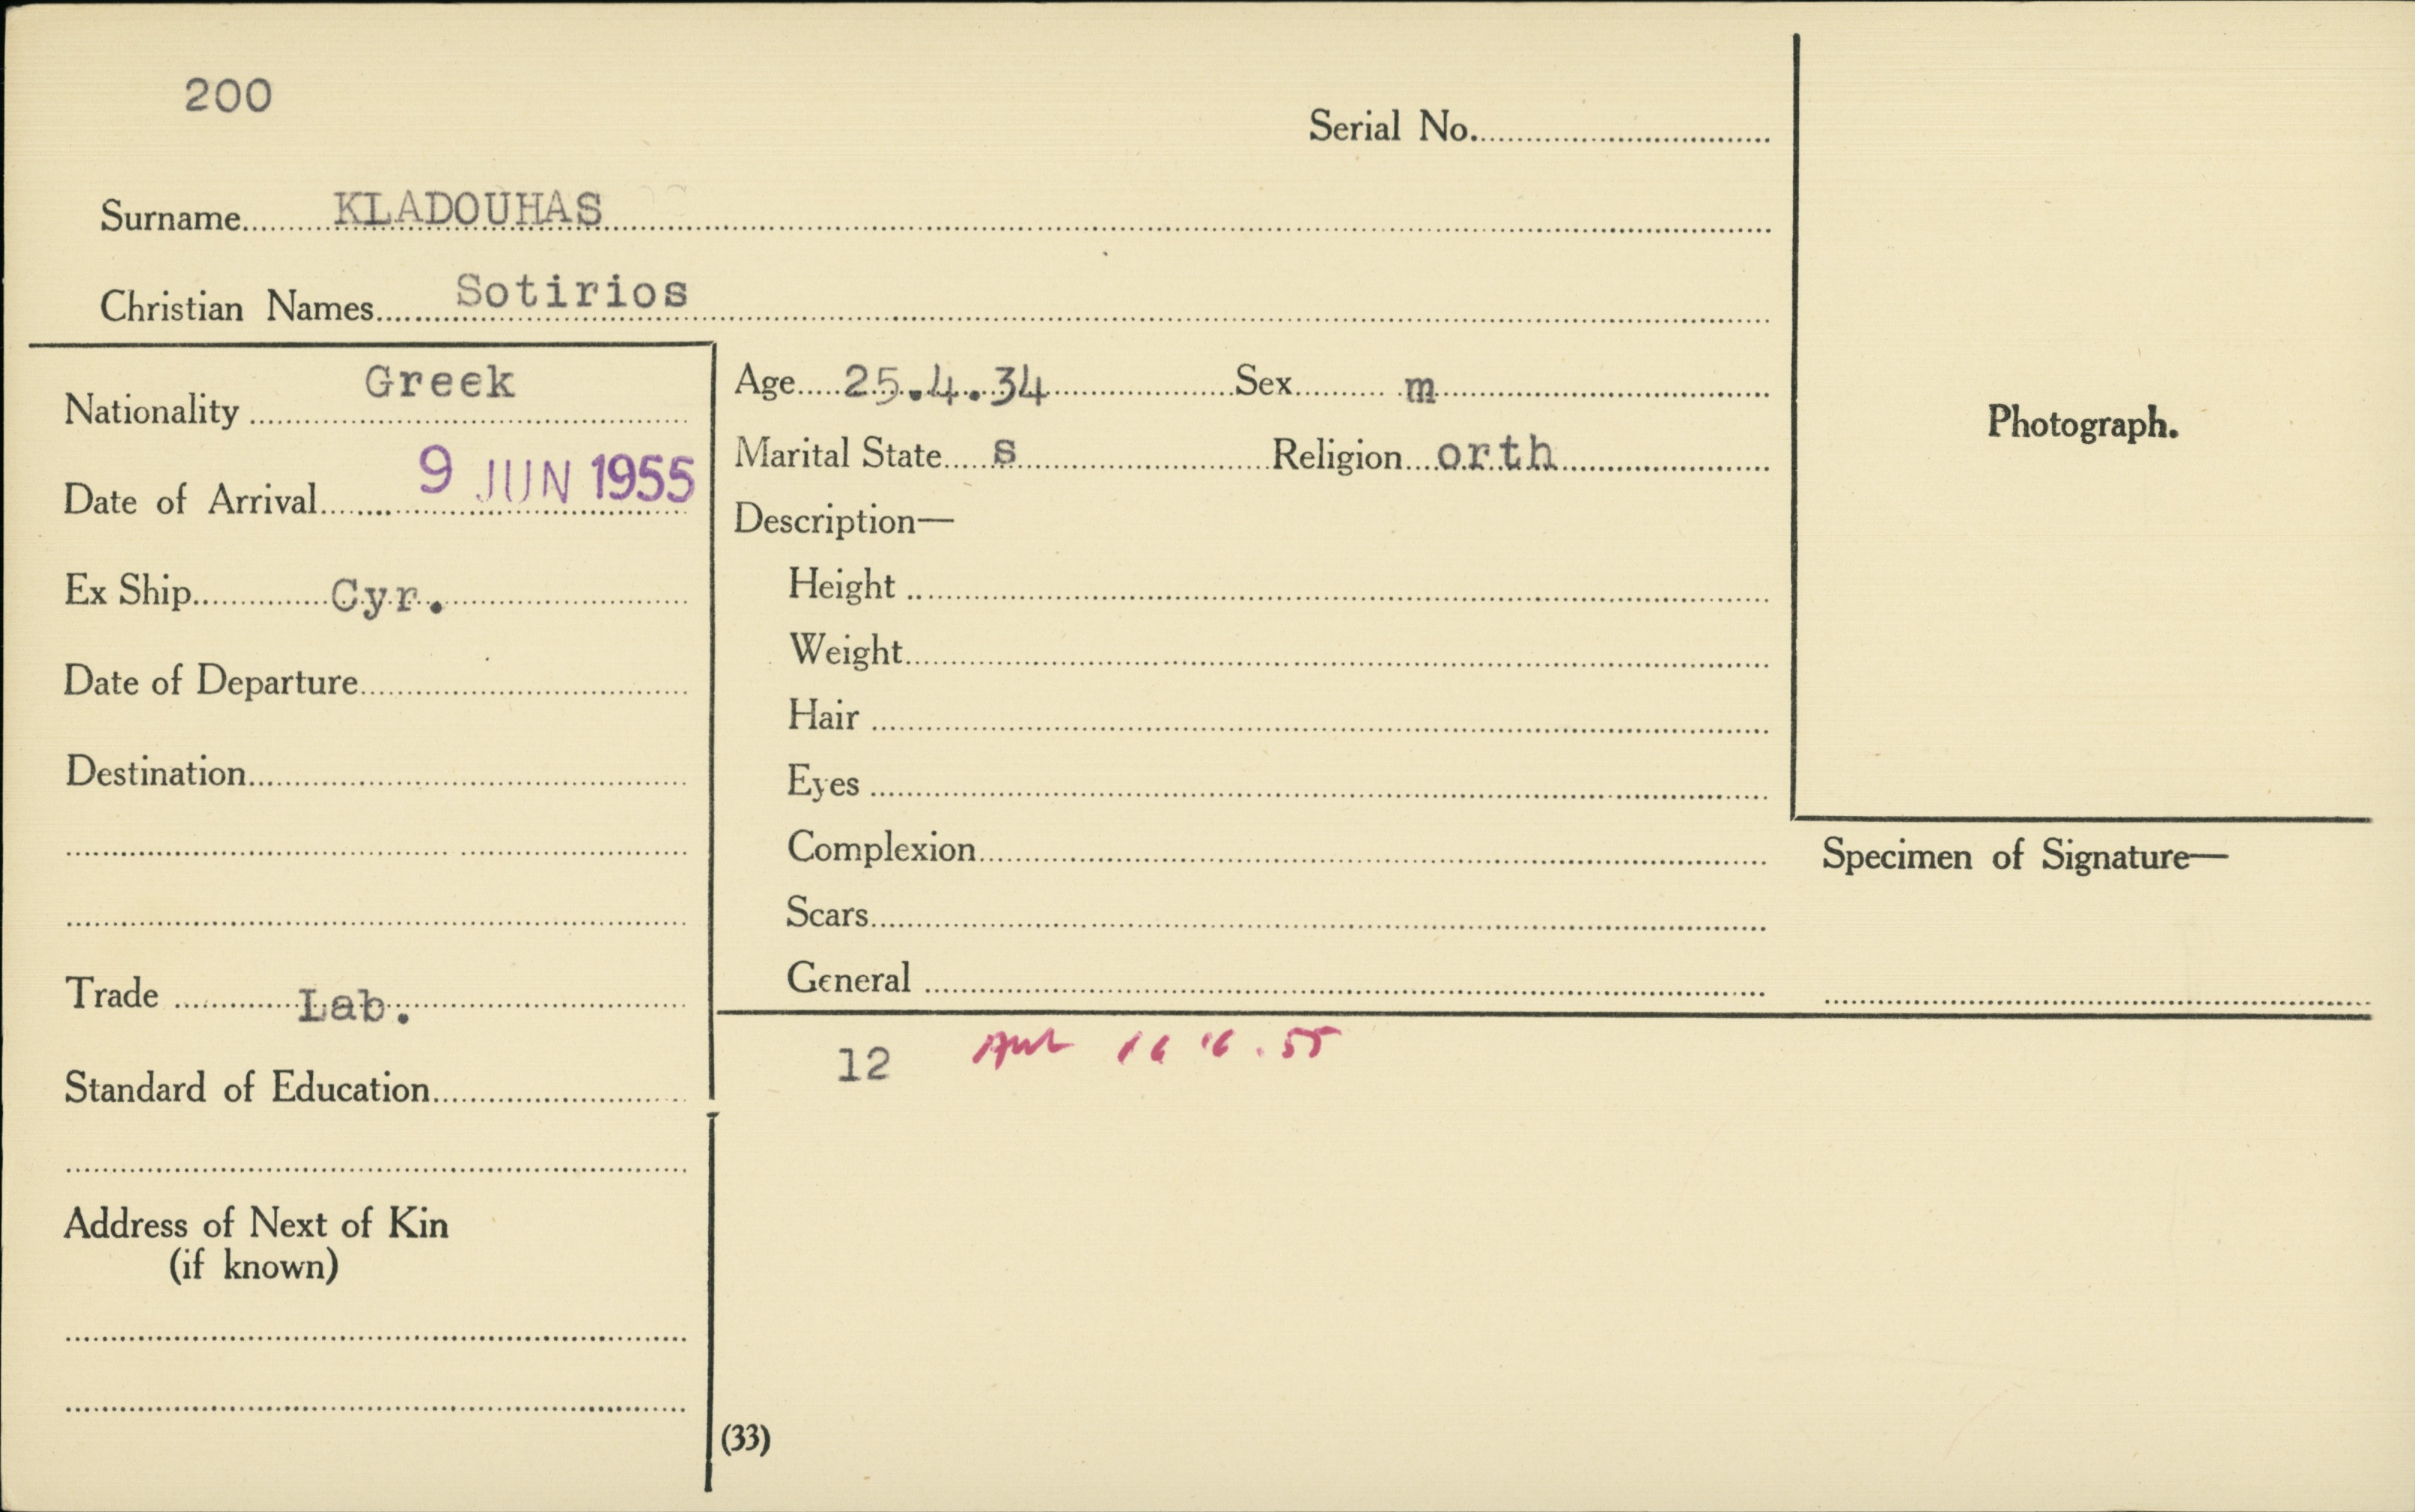 200
Serial No.
Surname KLADOUHAS
Christian Names Sotirios
Nationality Greek
Date of Arrival 9 JUN 1955
Ex Ship Cyr.
Date of Departure
Destination
Trade Lab.
Standard of Education
Address of Next of Kin
(if known)
Age 25.4.34 Sex m
Marital State s Religion orth
Description—
Height
Weight
Hair
Eyes
Complexion
Scars
General
Photograph.
Specimen of Signature—
12 16 6.55
(33)